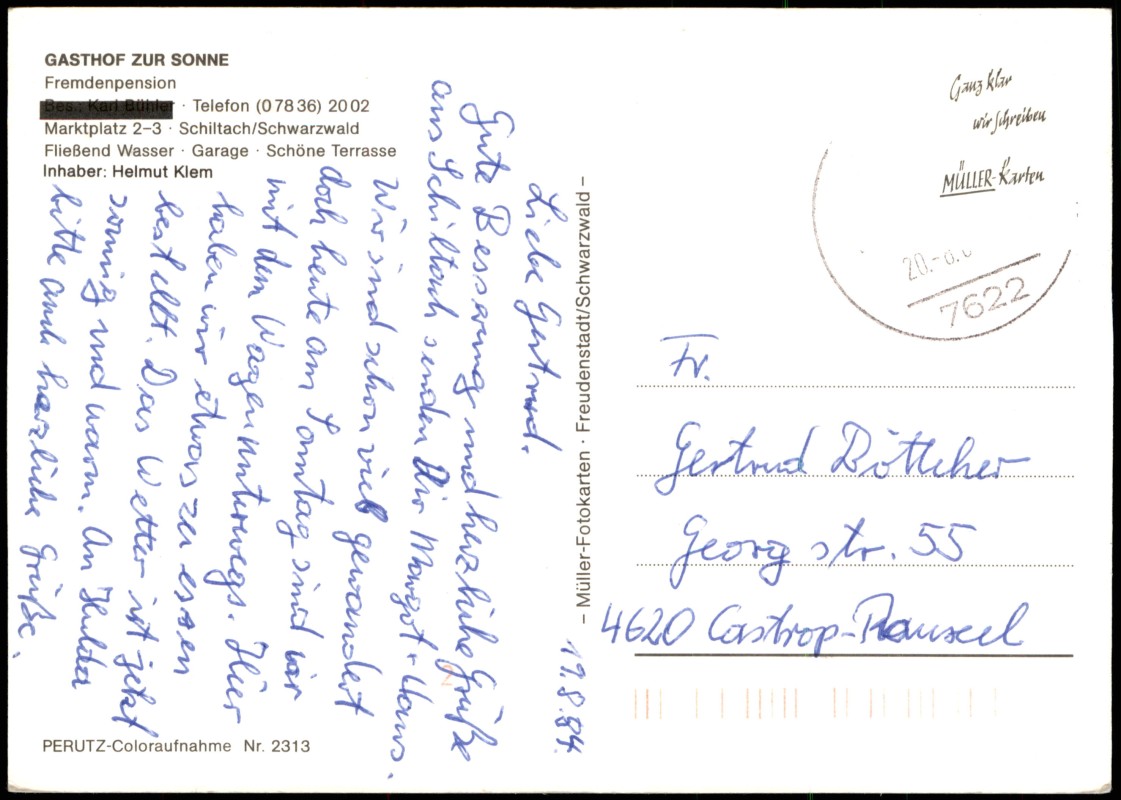 GASTHOF ZUR SONNE
Fremdenpension
Bes.: Karl Bühler · Telefon (0 78 36) 20 02
Marktplatz 2–3 · Schiltach/Schwarzwald
Fließend Wasser · Garage · Schöne Terrasse
Inhaber: Helmut Klem
19.8.84.
Liebe Gertrud.
Gute Besserung und herzliche Grüße
aus Schiltach senden Dir Margot u. Hans.
Wir sind schon viel gewandert
doch heute am Sonntag sind wir
mit dem Wagen unterwegs. Hier
haben wir etwas zu essen
bestellt. Das Wetter ist jetzt
sonnig und warm. An Hulda
bitte auch herzliche Grüße.
PERUTZ-Coloraufnahme Nr. 2313
– Müller-Fotokarten · Freudenstadt/Schwarzwald –
Ganz klar
wir schreiben
MÜLLER-Karten
20.-8.8
7622
Fr.
Gertrud Böttcher
Georg str. 55
4620 Castrop-Rauxel